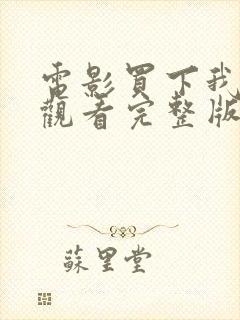 電影買下我
觀看完整版
蘇里堂